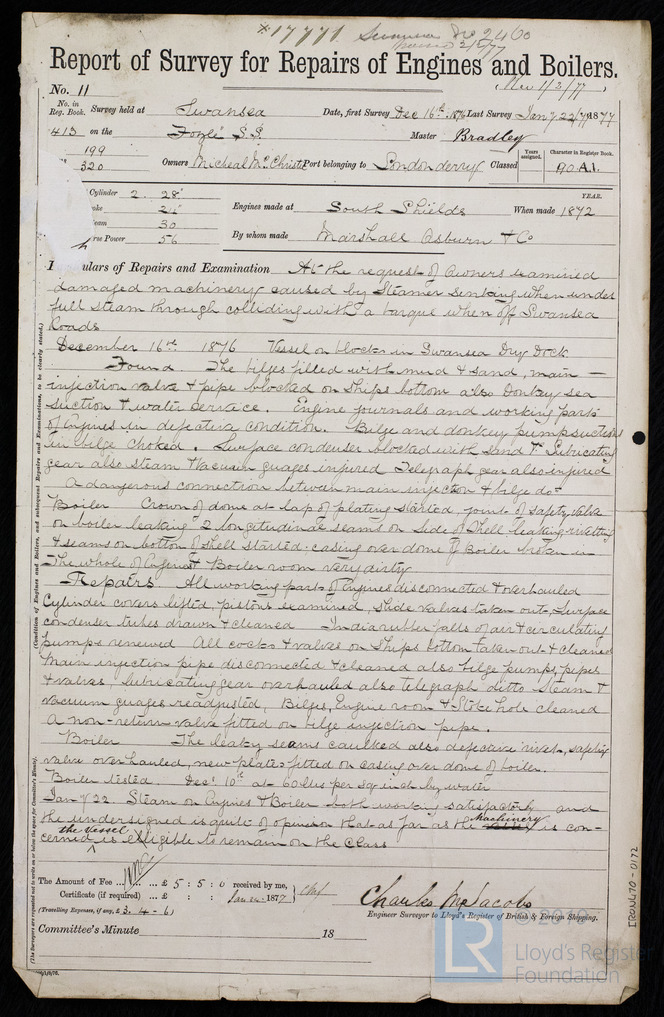 *17771 No 2460
2/2/77
Report of Survey for Repairs of Engines and Boilers.
No. 11
1/2/77
No. in Reg. Book. Survey held at Swansea Date, first Survey Dec 16th 1876 Last Survey Jany 22/77 1877
413 on the Foyle S.S. Master Bradley
199
320 Owners Micheal Mc Christie Port belonging to Londonderry Classed Years assigned. Character in Register Book. 90 A.1.
Cylinder 2. 28"
oke
eam 30
rse Power 56
Engines made at South Shields When made YEAR. 1872
By whom made Marshall Osburn & Co
ulars of Repairs and Examination At the request of Owners examined
damaged machinery caused by Steamer sinking when under
full steam through colliding with a barque when off Swansea
Roads
December 16th 1876 Vessel on blocks in Swansea Dry Dock.
Found. The bilges filled with mud & sand, main
injection valve & pipe blocked on Ships bottom also Donkey sea
suction & water service. Engine journals and working parts
of Engines in defective condition. Bilge and donkey pump suctions
in bilge choked. Surface condenser blocked with sand &c Lubricating
gear also steam & vacuum guages injured Telegraph gear also injured
A dangerous connection between main injection & bilge do-
Boiler Crown of dome at lap of plating started, joint of safety valve
on boiler leaking 2 longitudinal seams on side of Shell leaking, rivetting
& seams on bottom of shell started. casing over dome of Boiler broken in
The whole of Engines & Boiler room very dirty
Repairs. All working parts of Engines disconnected & overhauled
Cylinder covers lifted, pistons examined, slide valves taken out, Surface
condenser tubes drawn & cleaned Indiarubber falls of air & circulating
pumps renewed All cocks & valves on Ships bottom taken out & cleaned
Main injection pipe disconnected & cleaned also bilge pumps, pipes
& valves, lubricating gear overhauled also telegraph ditto Steam &
vacuum guages readjusted, Bilges, Engine room & Stoke hole cleaned
A non-return valve fitted on bilge injection pipe.
Boiler The leaky seams caulked also defective rivets, safety
valve overhauled, new plates fitted on casing over dome of boiler.
Boiler tested. Decr 10th at 60 lbs per sq inch by water
Jany 22. Steam on Engines & Boiler both working satisfactory and
the undersigned is quite of opinion that as far as the Machinery is con-
cerned the Vessel is eligible to remain on the Class
The Amount of Fee ... £ 5 : 5 : 0 received by me,
Certificate (if required) ... £ : : 1877
(Travelling Expenses, if any, £ 3. 4 - 6)
Charles McJacobs
Engineer Surveyor to Lloyd's Register of British & Foreign Shipping.
Committee's Minute 18
(The Surveyors are requested not to write on or below the space for Committee's Minute).
(Condition of Engines and Boilers, and subsequent Repairs and Examinations, to be clearly stated.)
IRON670-0172
LR
Lloyd's Register
Foundation